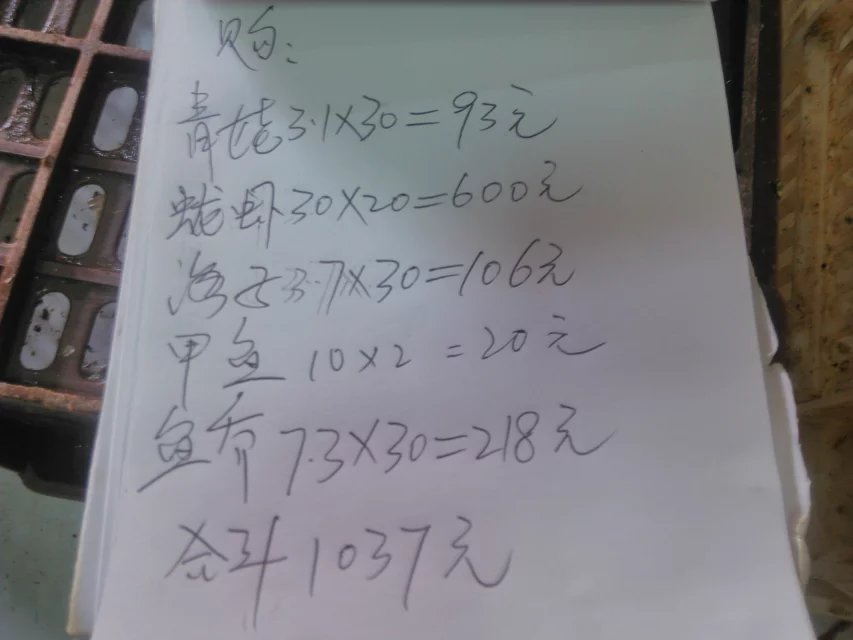 购:
青蛯3.1×30=93元
30×20=600元
3.7×30=106元
甲鱼 10×2=20元
7.3×30=218元
合计1037元